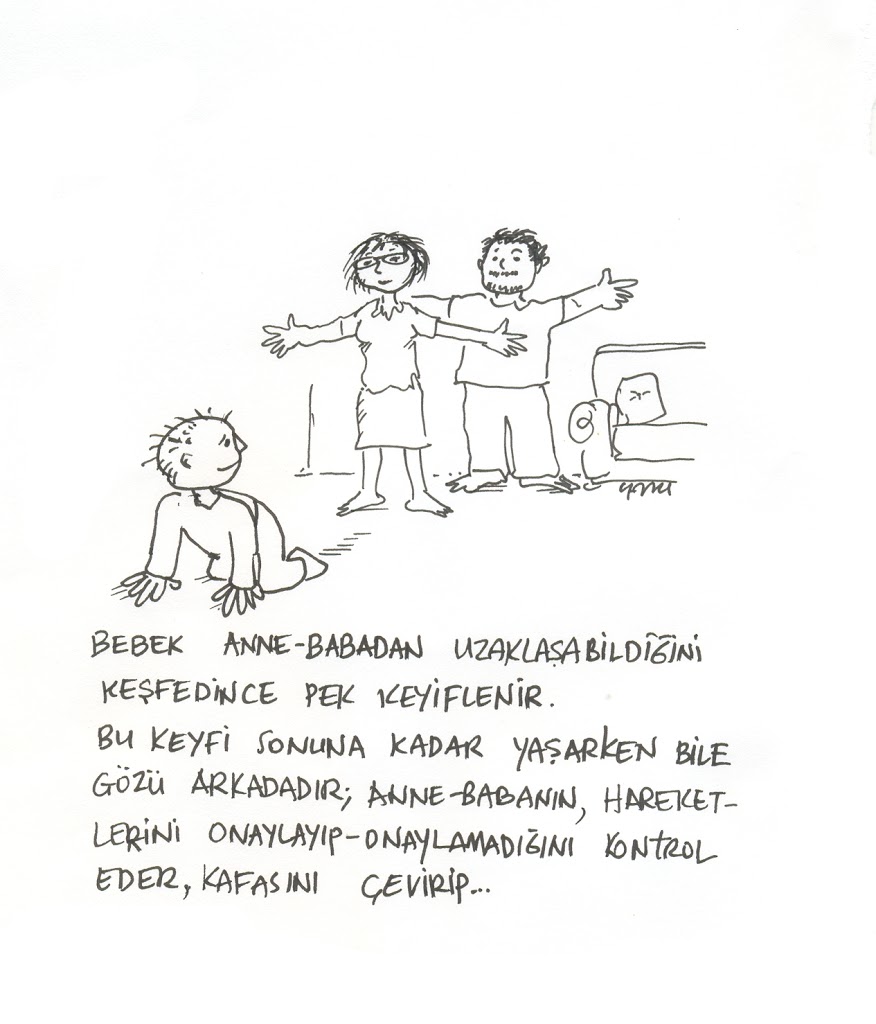 BEBEK ANNE-BABADAN UZAKLAŞABİLDİĞİNİ
KEŞFEDİNCE PEK KEYİFLENİR.
BU KEYFİ SONUNA KADAR YAŞARKEN BİLE
GÖZÜ ARKADADIR; ANNE-BABANIN, HAREKET-
LERİNİ ONAYLAYIP-ONAYLAMADIĞINI KONTROL
EDER, KAFASINI ÇEVİRİP...